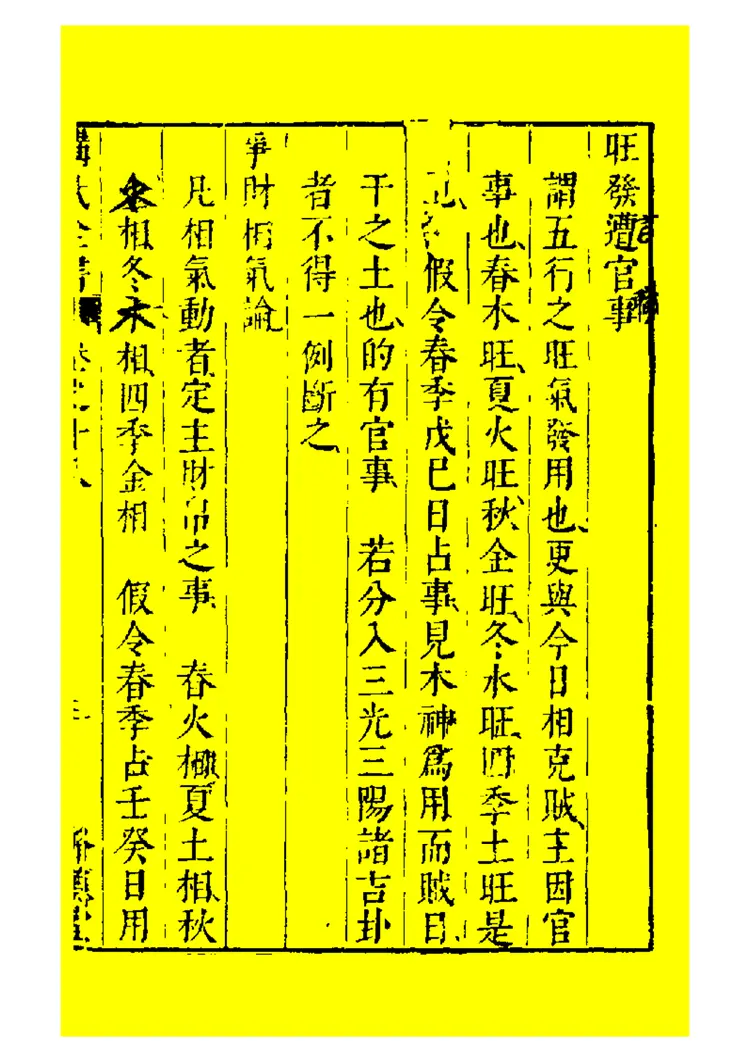 旺發遭官事
謂五行之旺氣發用也更與今日相克賊主因官
事也春木旺夏火旺秋金旺冬水旺四季土旺是
假令春季戊巳日占事見木神爲用而賊日
干之土也的有官事 若分入三光三陽諸吉卦
者不得一例斷之
爭財相氣論
凡相氣動者定主財帛之事 春火相夏土相秋
水相冬木相四季金相 假令春季占壬癸日用